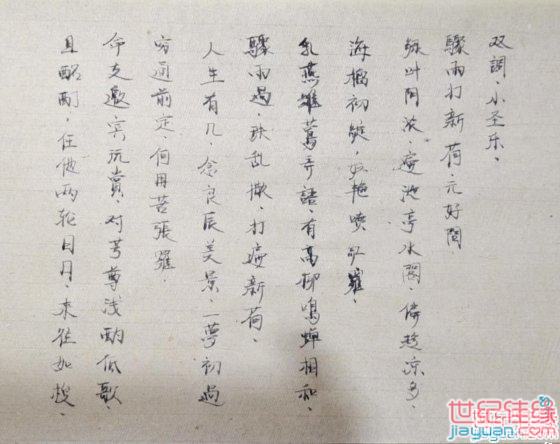 双調．小圣乐．
驟雨打新荷．元好問
绿叶阴浓．遍池亭水閣．偏趁凉多．
海榴初绽．妖艳喷红羅．
乳燕雏莺弄語．有高柳鸣蝉相和．
驟雨過．珠乱撒．打遍新荷．
人生有几．念良辰美景．一夢初過
穷通前定．何用苦張羅．
命友邀宾玩赏．对芳尊浅酌低歌．
且酩酊．任他两轮日月．来往如梭．
世纪佳缘
jiayuan.com